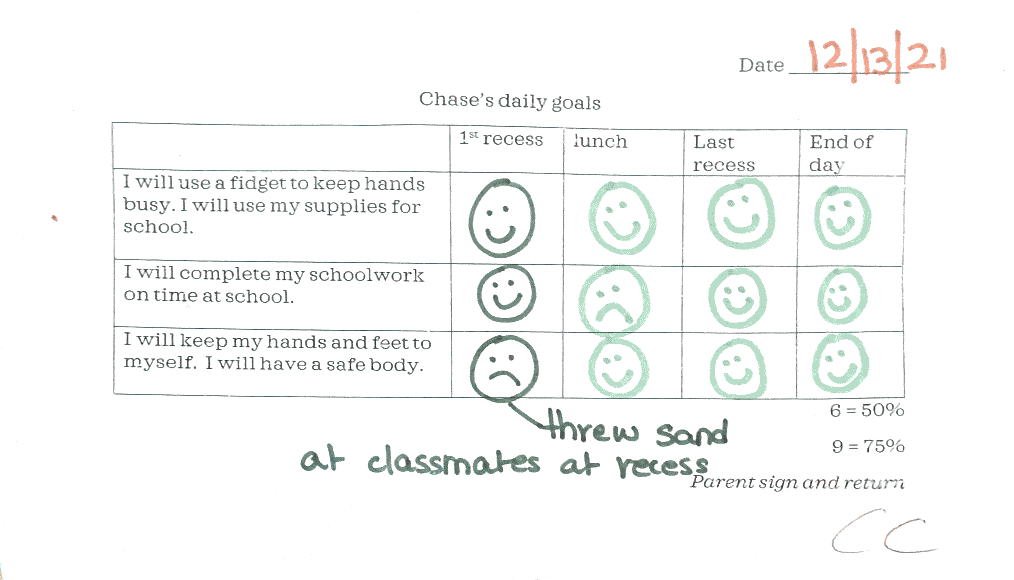 Date 12/13/21
Chase's daily goals
1st recess lunch Last recess End of day
I will use a fidget to keep hands
busy. I will use my supplies for
school.
I will complete my schoolwork
on time at school.
I will keep my hands and feet to
myself. I will have a safe body.
6 = 50%
threw sand
9 = 75%
at classmates at recess
Parent sign and return
CC